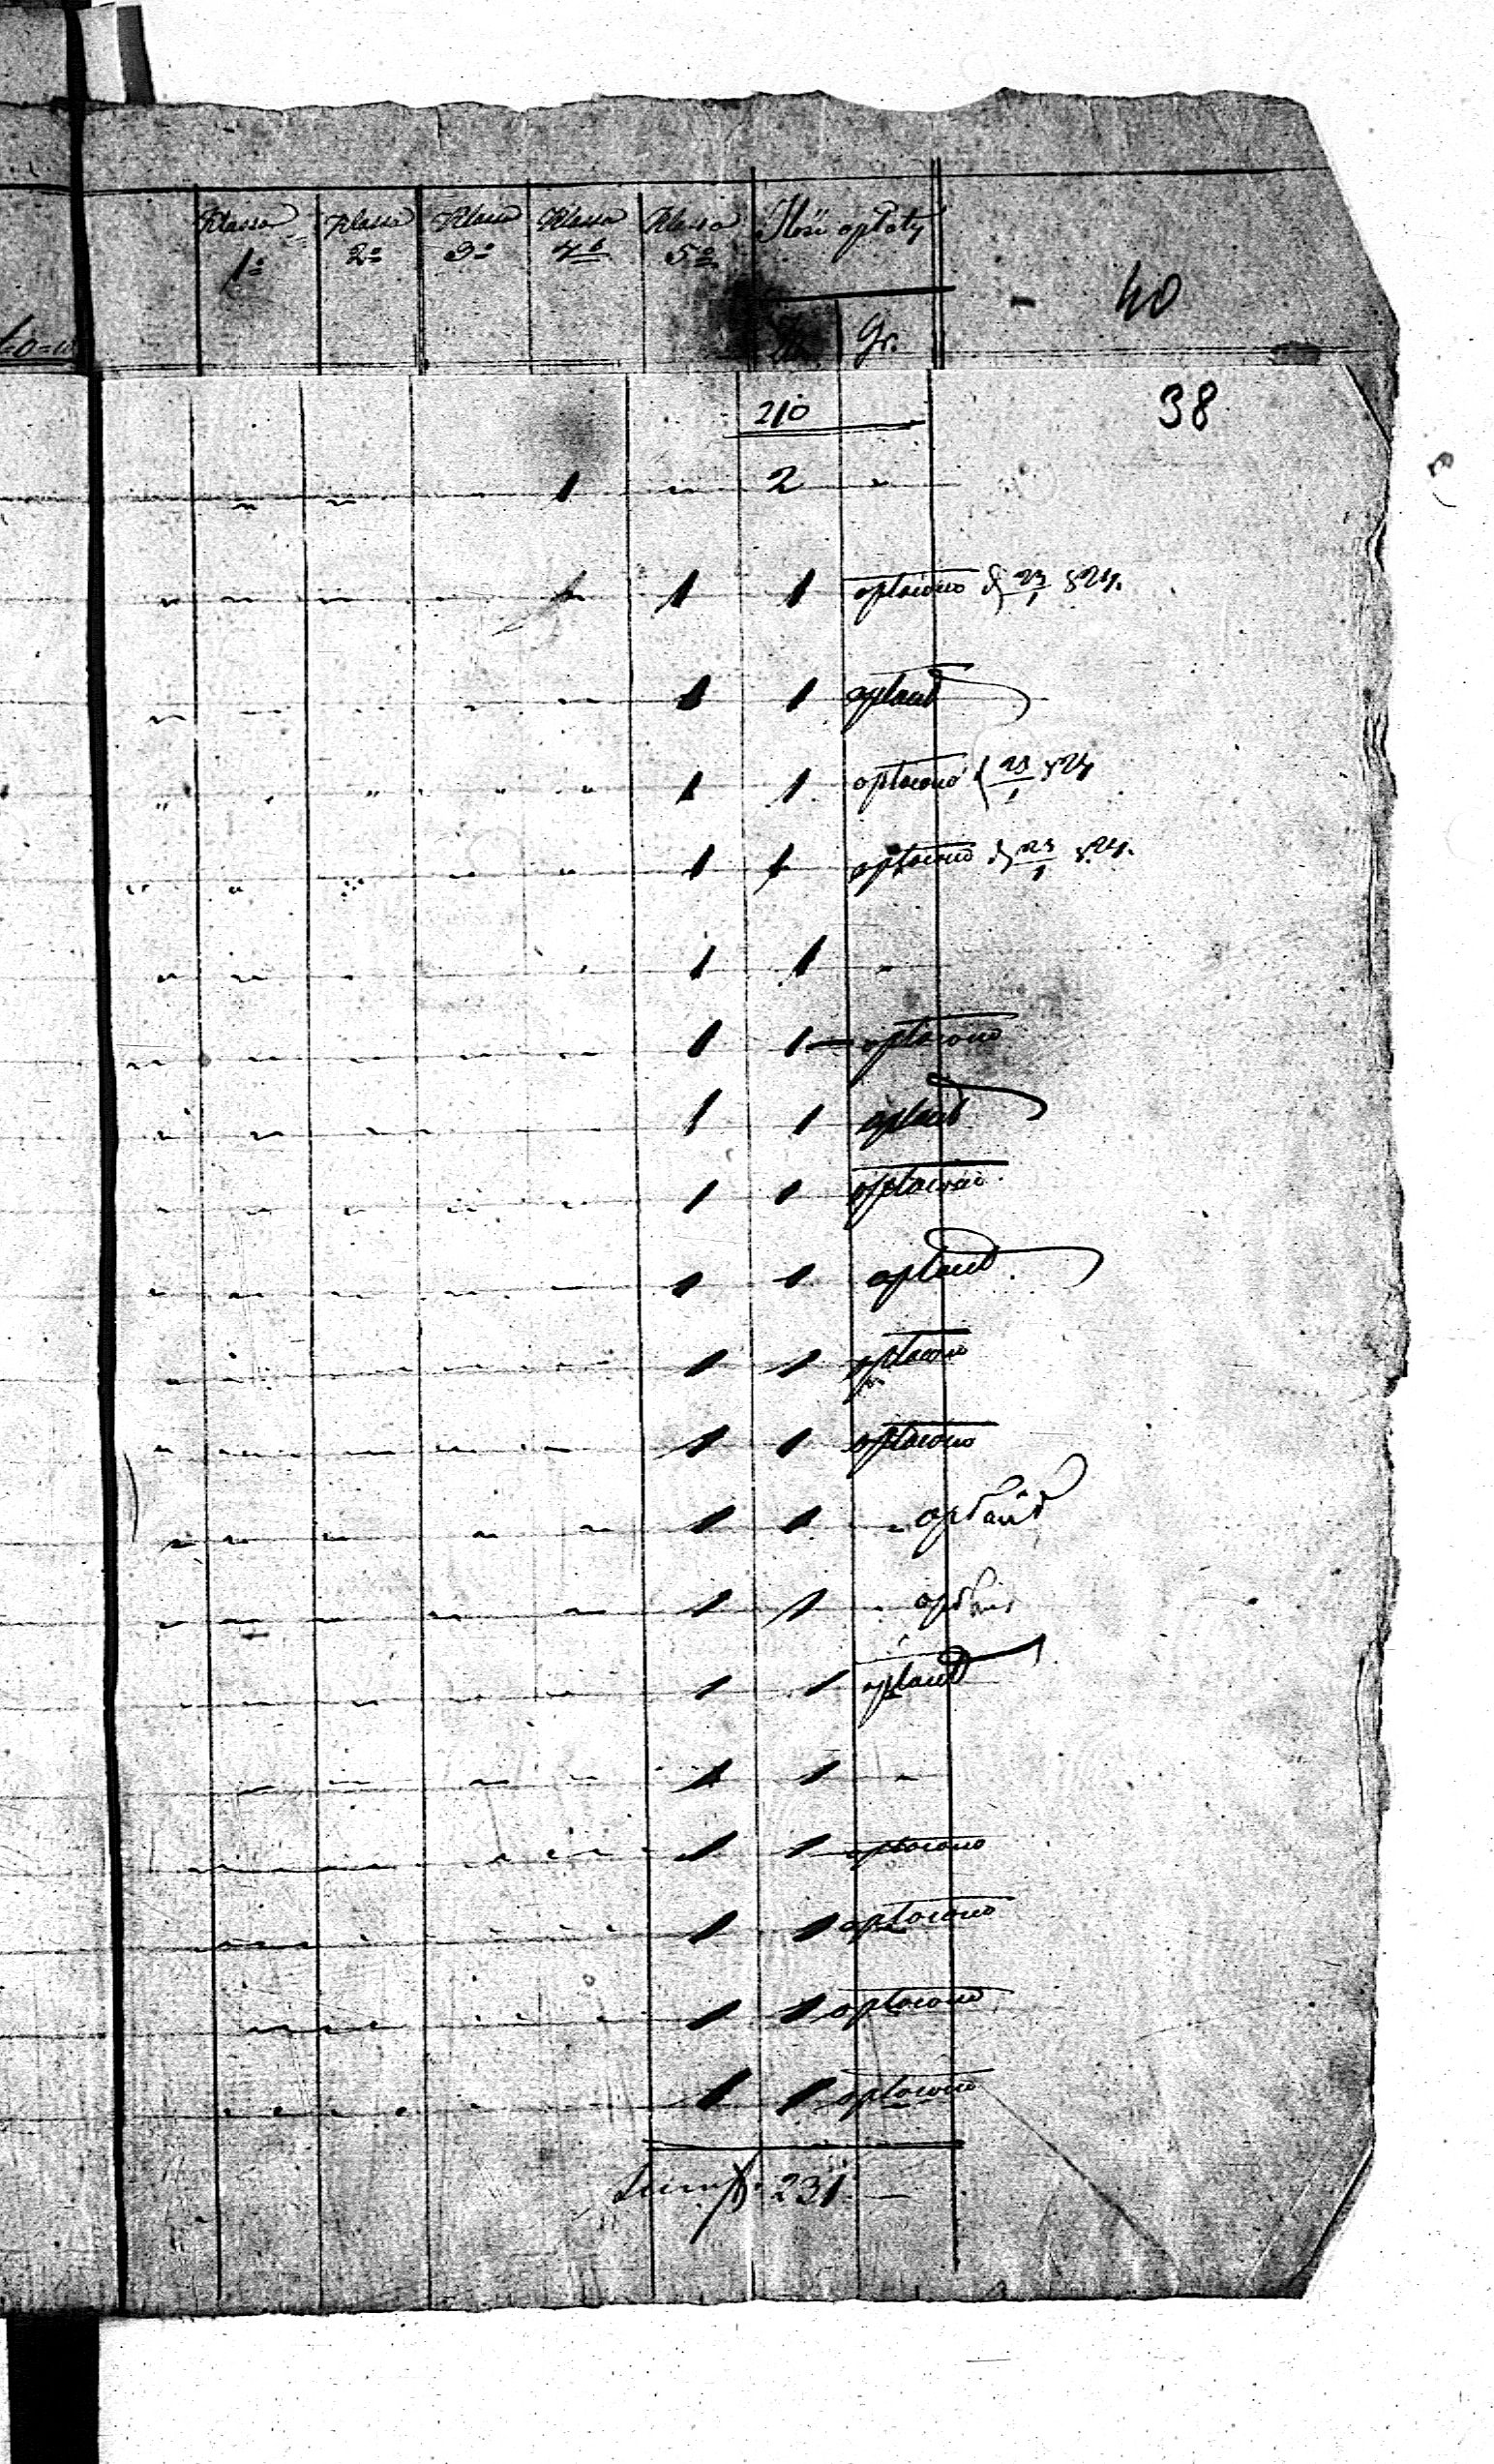 Klassa 1a Klassa 2a Klassa 3a Klassa 4a Klassa 5a Ilość opłaty
40
Gr.
38
210
" " 1 " 2 "
" " " " 1 1 opłacono 24.
" " " " " 1 1 opłacił
" " " " " 1 1 opłacono 24
" " " " " 1 1 opłacono 24.
" " " " " 1 1 "
" " " " " 1 1 — opłacono
" " " " 1 1 opłacił
" " " " " 1 1 opłacono
" " " " " 1 1 opłacił
" " " " " 1 1 opłacono
" " " " " 1 1 opłacono
" " " " " 1 1 " opłacił
" " " " " 1 1 "
" " " " " 1 1 opłacił
" " " " 1 1 "
" " " " " 1 1 opłacono
" " " " " 1 1 opłacono
" " " " " 1 1 opłacono
" " " " " 1 1 opłacono
231 —